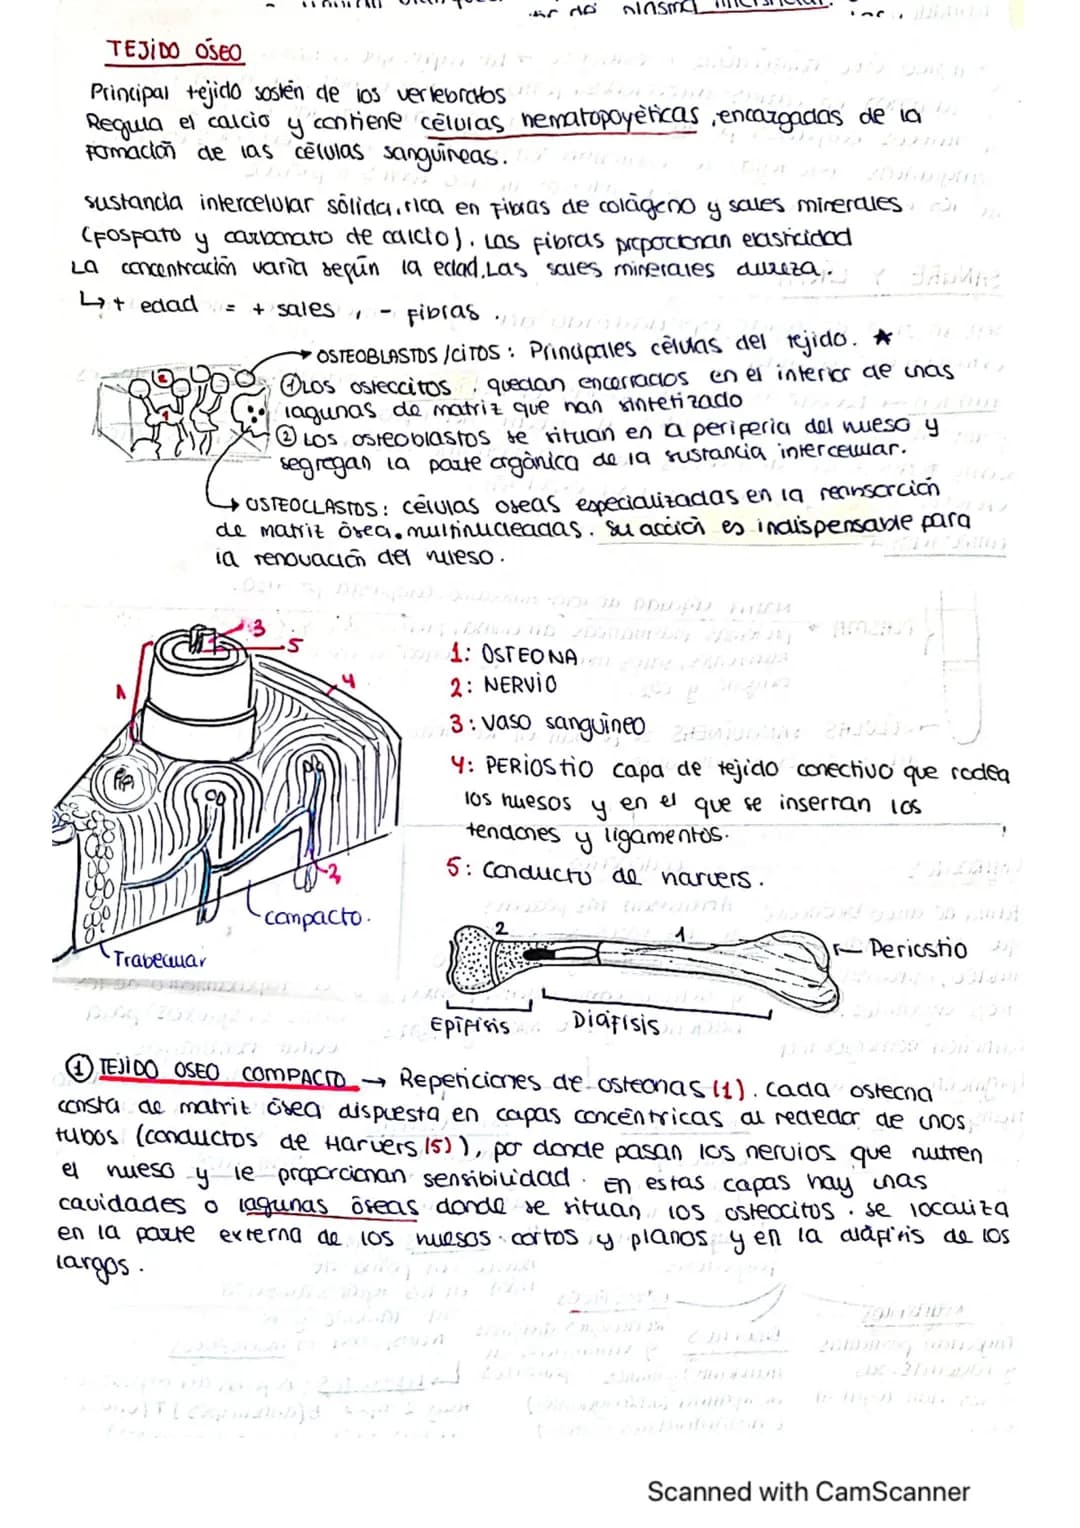 TEJIDO ÓSEO
Principal tejido sostén de los vertebrados
Regula el calcio y contiene células hematopoyéticas, encargadas de la
formación de las células sanguíneas.
sustancia intercelular sólida, rica en fibras de colágeno y sales minerales
(fosfato y carbonato de calcio). Las fibras proporcionan elasticidad
La concentración varía según la edad. Las sales minerales dureza.
↳ + edad = + sales, - fibras.
→ OSTEOBLASTOS /CITOS: Principales células del tejido. ★
① Los osteocitos quedan encerrados en el interior de unas
lagunas de matriz que han sintetizado
② Los osteoblastos se situan en la periferia del hueso y
segregan la parte orgánica de la sustancia intercelular.
→ OSTEOCLASTOS: células oseas especializadas en la reabsorción
de matriz ósea, multinucleadas. Su acción es indispensable para
la renovación del hueso.
1: OSTEONA
2: NERVIO
3: vaso sanguineo
4: PERIOSTIO capa de tejido conectivo que rodea
los huesos y en el que se insertan los
tendones y ligamentos.
5: Conducto de harvers.
3
5
1
4
2
compacto.
Trabecular
2
1
Periostio
Epífisis
Diáfisis
① TEJIDO OSEO COMPACTO → Repeticiones de osteonas (1). Cada osteona
consta de matriz ósea dispuesta en capas concéntricas al rededor de unos
tubos (conductos de Harvers (5)), por donde pasan los nervios que nutren
el hueso y le proporcionan sensibilidad. En estas capas hay unas
cavidades o lagunas óseas donde se situan los osteocitos. se localiza
en la parte externa de los huesos cortos y planos y en la diáfisis de los
largos.
Scanned with CamScanner